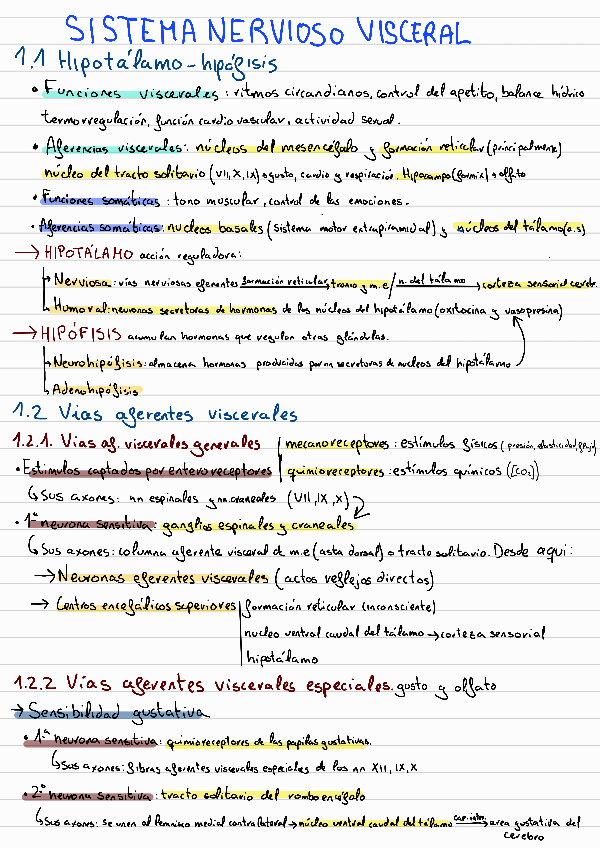 SISTEMA NERVIOSO VISCERAL
1.1 Hipotálamo-hipófisis
• Funciones viscerales: ritmos circandianos, control del apetito, balance hídrico
termorregulación, función cardio vascular, actividad sexual.
• Aferencias viscerales: núcleos del mesencéfalo y formación reticular (principalmente)
núcleo del tracto solitario (VII, X, IX) → gusto, cardio y respiració. Hipocampo (fornix) → olfato
• Funciones somáticas: tono muscular, control de las emociones.
• Aferencias somáticas: nucleos basales (sistema motor extrapiramidal) y núcleos del tálamo (o.s)
→ HIPOTÁLAMO acción reguladora:
↳ Nerviosa: vías nerviosas eferentes formación reticular, tronco y m.e / n. del tálamo → corteza sensorial cerebr.
↳ Humoral: neuronas secretoras de hormonas de los núcleos del hipotálamo (oxitocina y vasopresina)
→ HIPÓFISIS acumulan hormonas que regulan otras glándulas.
↳ Neurohipófisis: almacena hormonas producidas por nn secretoras de nucleos del hipotálamo
↳ Adenohipófisis
1.2 Vías aferentes viscerales
1.2.1. Vías af. viscerales generales | mecanoreceptores: estímulos físicos (presión, elasticidad, flujo)
• Estímulos captados por entero receptores | quimioreceptores: estímulos químicos ([CO2])
↳ Sus axones: nn espinales y nn. craneales (VII, IX, X)
• 1ª neurona sensitiva: ganglios espinales y craneales
↳ Sus axones: columna aferente visceral de m.e (asta dorsal) o tracto solitario. Desde aquí:
→ Neuronas eferentes viscerales (actos reflejos directos)
→ Centros encefálicos superiores | formación reticular (inconsciente)
nucleo ventral caudal del tálamo → corteza sensorial
hipotálamo
1.2.2 Vías aferentes viscerales especiales. gusto y olfato
→ Sensibilidad gustativa
• 1ª neurona sensitiva: quimioreceptores de las papilas gustativas.
↳ Sus axones: fibras aferentes viscerales especiales de los nn XII, IX, X
• 2ª neurona sensitiva: tracto solitario del romboencéfalo
↳ Sus axones: se unen al lemnisco medial contralateral → núcleo ventral caudal del tálamo cap. intn. → area gustativa del
cerebro